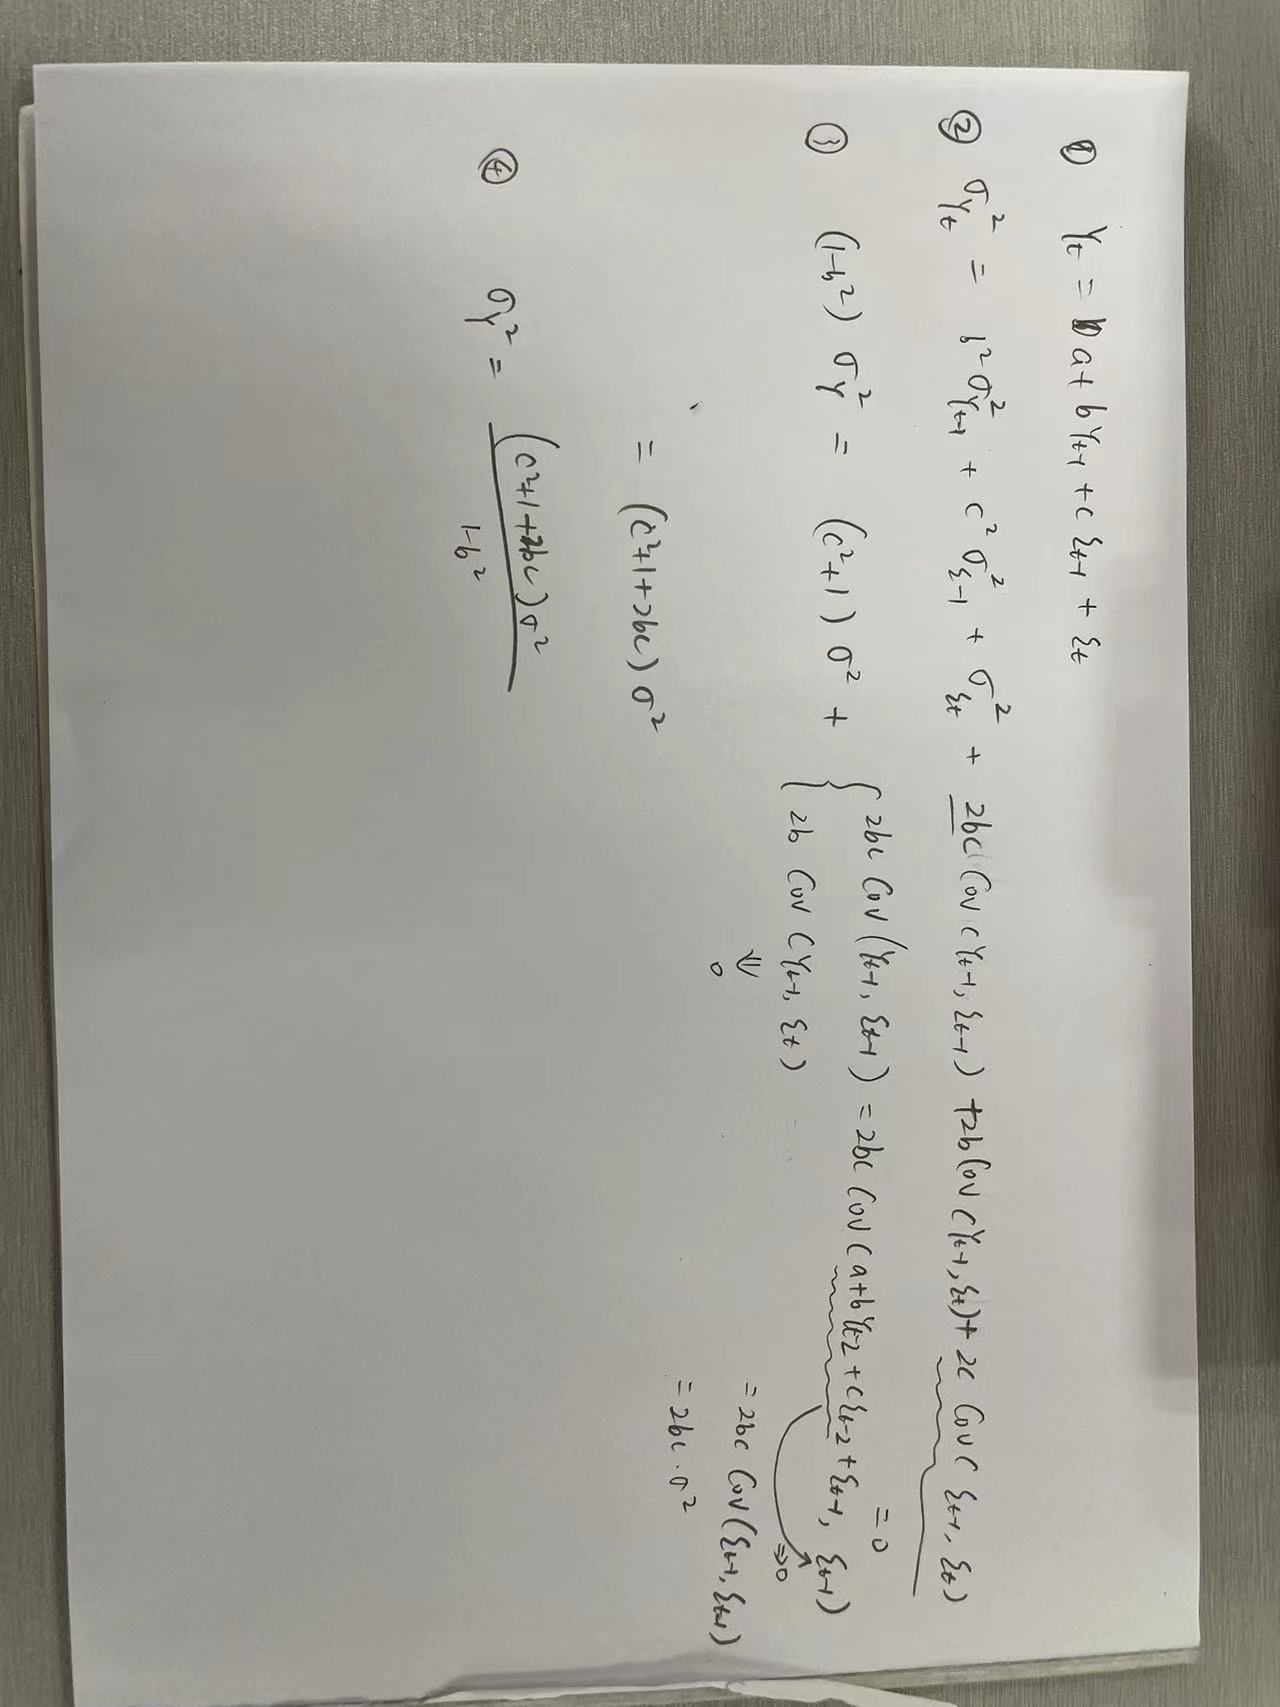 ① Yₜ = a + bYₜ₋₁ + cξₜ₋₁ + ξₜ
② σ²_Yₜ = b²σ²_Yₜ₋₁ + c²σ²_ξ₋₁ + σ²_ξₜ + 2bc Cov(Yₜ₋₁, ξₜ₋₁) + 2b Cov(Yₜ₋₁, ξₜ) + 2c Cov(ξₜ₋₁, ξₜ)
= 0
③ (1-b²) σ_Y² = (c²+1) σ² + { 2bc Cov(Yₜ₋₁, ξₜ₋₁) = 2bc Cov(a+bYₜ₋₂+cξₜ₋₂+ξₜ₋₁, ξₜ₋₁)
2b Cov(Yₜ₋₁, ξₜ)
⇒0
⇓
0
= 2bc Cov(ξₜ₋₁, ξₜ₋₁)
= 2bc·σ²
= (c²+1+2bc) σ²
④ σ_Y² = (c²+1+2bc)σ²
1-b²